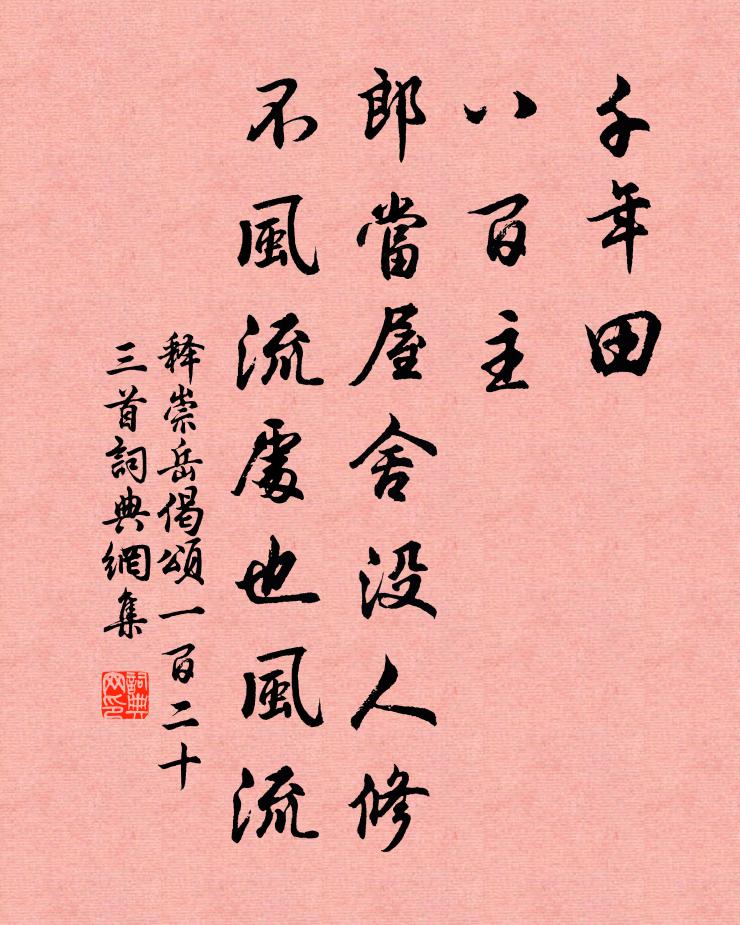 千年田
八百主
郎當屋舍没人修
不風流處也風流
释崇岳偈頌一百二十
三首詞典網集
詞典
网印